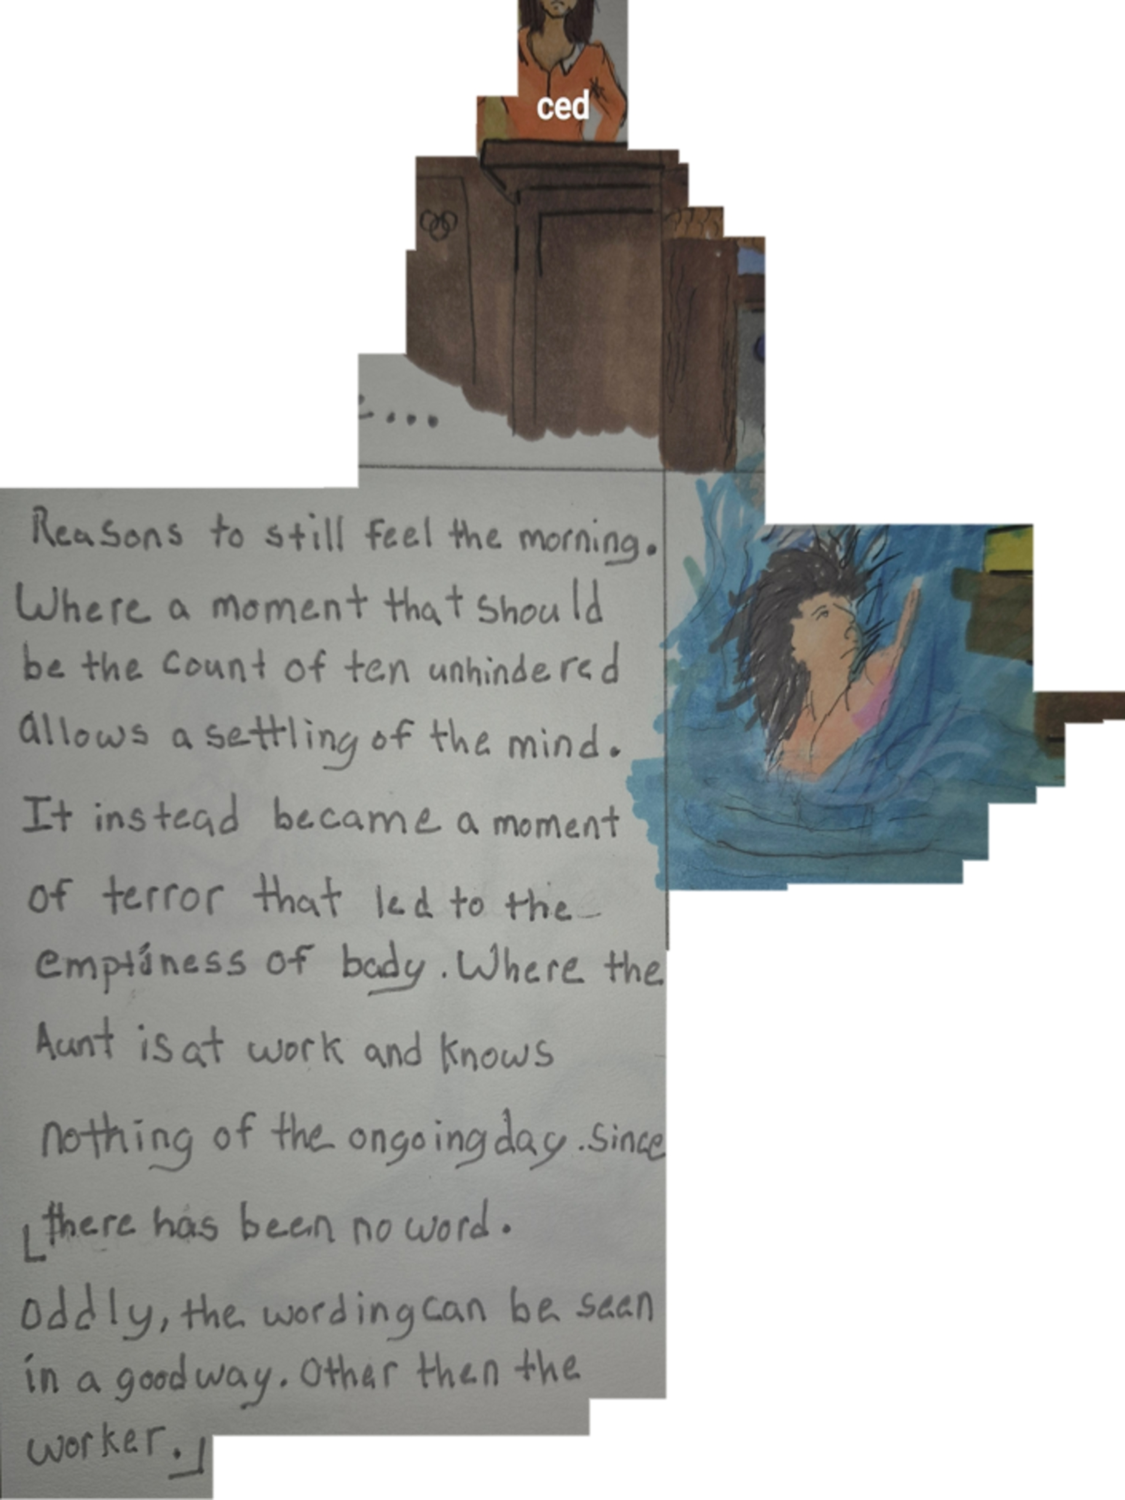 ced
Reasons to still feel the morning.
Where a moment that should
be the count of ten unhindered
allows a settling of the mind.
It instead became a moment
of terror that led to the
emptiness of body. Where the
Aunt is at work and knows
nothing of the ongoing day. Since
there has been no word.
Oddly, the wording can be seen
in a good way. Other then the
worker.